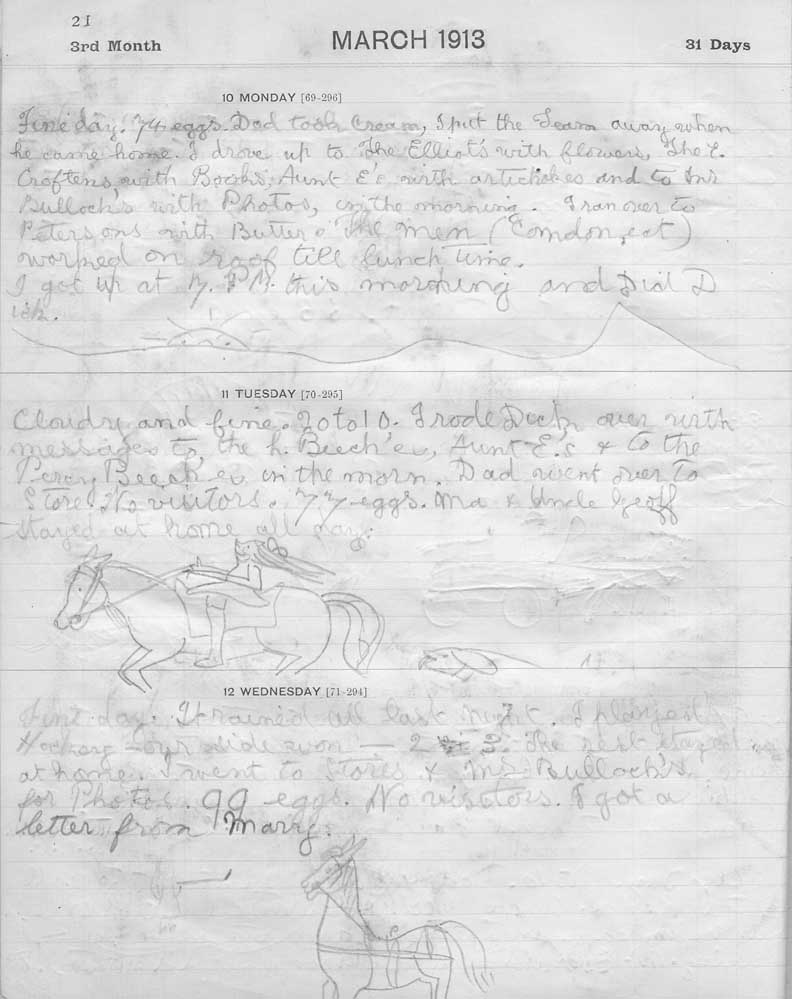 21
3rd Month
MARCH 1913
31 Days
10 MONDAY [69-296]
Fine day. 74 eggs. Dad took Cream, I put the Team away when
he came home. I drove up to The Elliot's with flowers, The
Croftens, with Books, Aunt E's with artichokes and to
Bulloch's with Photos, in the morning. I ran over to
Petersons with Butter. The men
worked on roof till lunch Time.
I got up at 7. P.M. this morning and Did D
ish.
11 TUESDAY [70-295]
Cloudy and fine. 20 to 10. I rode Dick over with
messages to the h. Beech'es, Aunt E.'s & to the
Percy Beech'es in the morn. Dad went over to
Store. No visitors. 77 eggs. Ma & Uncle Geoff
stayed at home all day.
12 WEDNESDAY [71-294]
Fine day. It rained all last night. I played
Hockey - our side won - 2 3. The rest stayed
at home. I went to Stores & Mrs Bulloch's
for Photos. 99 eggs. No visitors. I got a
letter from Marry.